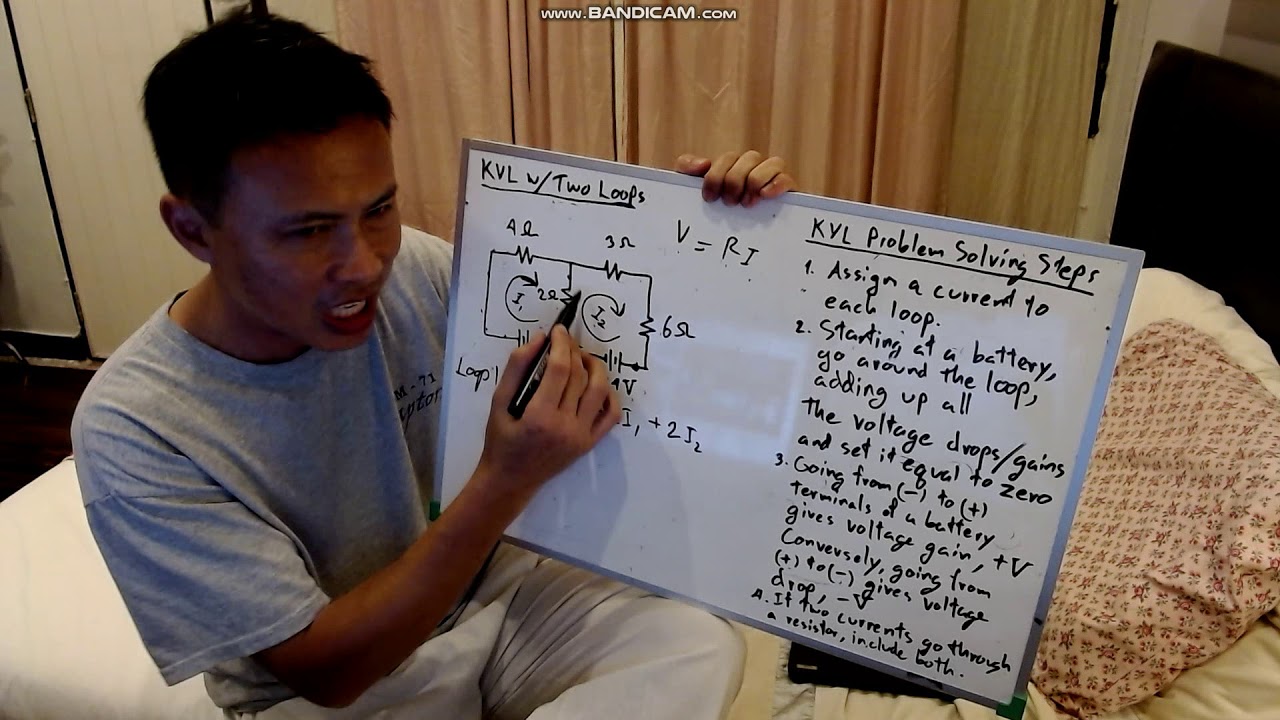 www.BANDICAM.com
KVL w/ Two Loops
4Ω
3Ω
V = RI
I₁
2Ω
I₂
6Ω
Loop 1
4V
I₁ + 2I₂
KVL Problem Solving Steps
1. Assign a current to
each loop.
2. Starting at a battery,
go around the loop,
adding up all
the voltage drops/gains
and set it equal to zero
3. Going from (-) to (+)
terminals of a battery
gives voltage gain, +V
Conversely, going from
(+) to (-) gives voltage
drop, -V
4. If two currents go through
a resistor, include both.
M-71